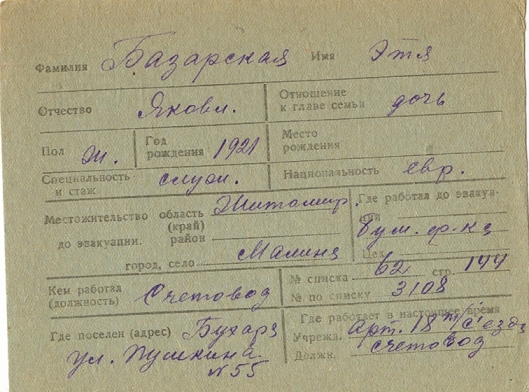 Фамилия Базарская Имя Этя
Отчество Яковл. Отношение к главе семьи дочь
Пол ж. Год рождения 1921 Место рождения
Специальность и стаж служ. Национальность евр.
Местожительство до эвакуации. область (край) Житомир. Где работал до эвакуации бум. ф-ка
район Цех
город, село Малина № списка 62 стр. 144
Кем работал (должность) Счетовод № по списку 3108
Где поселен (адрес) Бухара Где работает в настоящее время
ул. Пушкина Учрежд. Арт. 18 п/съезда
№ 55 Должн. счетовод